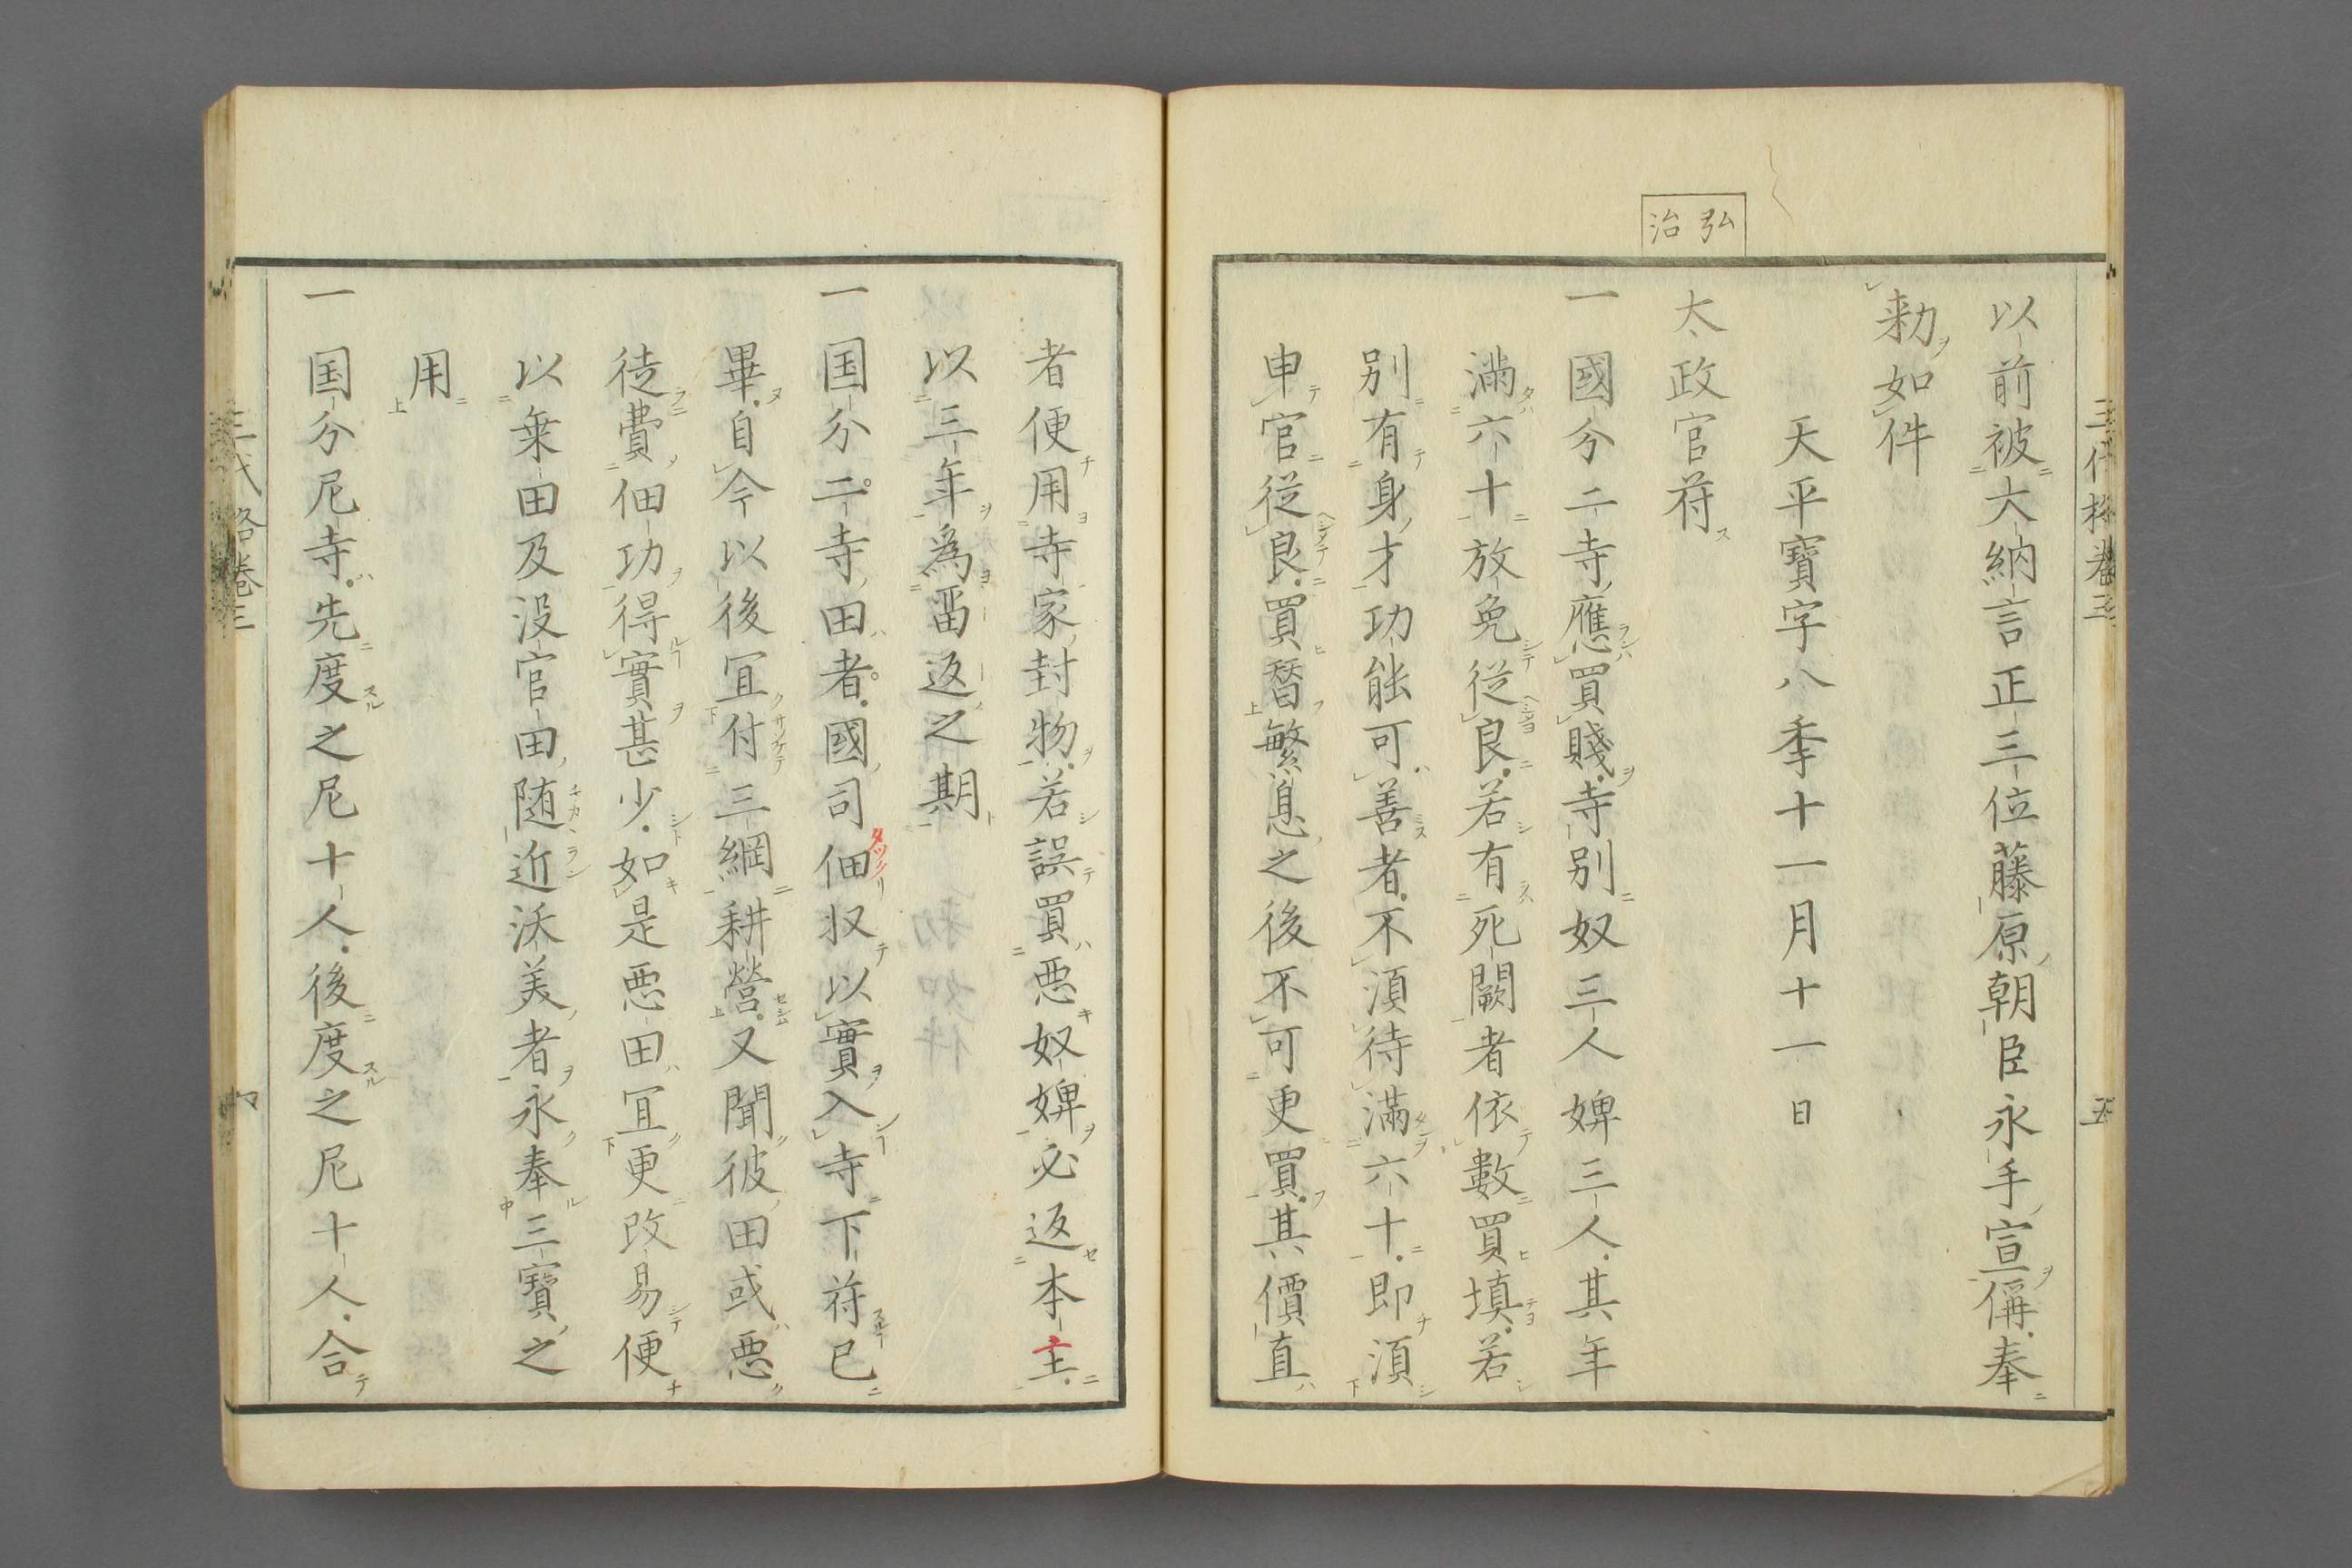 三代格卷三 五
弘治
以前被大納言正三位藤原朝臣永手宣偁奉
勅如件
天平寳字八季十一月十一日
太政官符
一國分二寺應買賤寺別奴三人婢三人其年
滿六十放免從良若有死闕者依數買填若
別有身才功能可善者不湏待滿六十即湏
申官從良買替繁息之後不可更買其價直
者便用寺家封物若誤買悪奴婢必返本主
以三年為畱返之期
一国分二寺田者國司佃収以實入寺下符已
畢自今以後冝付三綱耕營又聞彼田或悪
徒費佃功得實甚少如是悪田冝更改易便
以乗田及没官田随近沃美者永奉三寳之
用
一国分尼寺先度之尼十人後度之尼十人合
三代格卷三